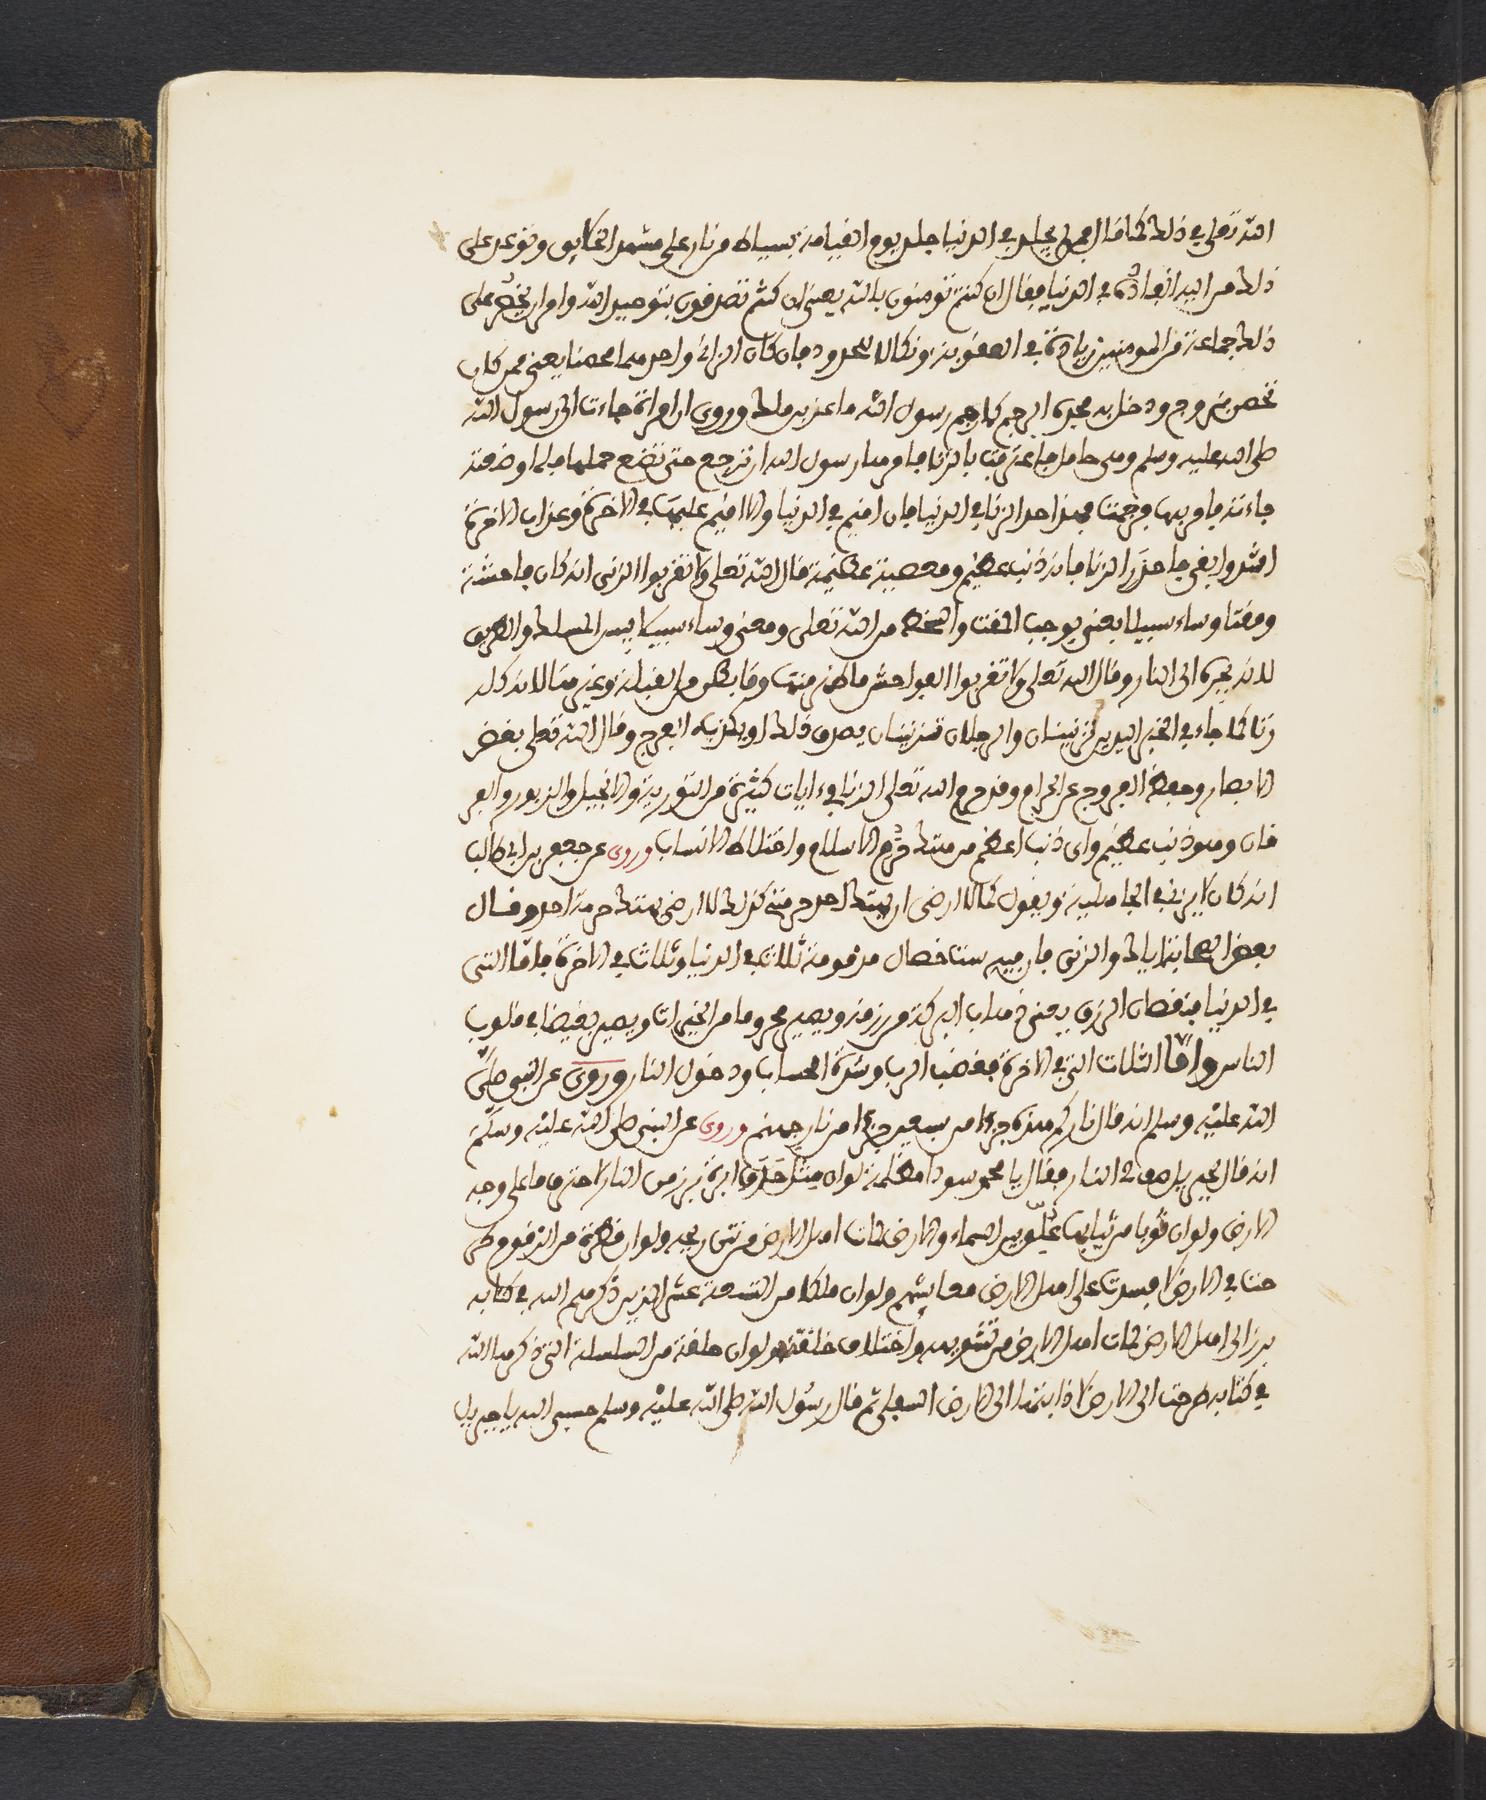 الله تعلى في ذلك كما قال فمن لم يجلد في الدنيا جلد يوم القيامة بسياط من نار على مشهد الخلايق وتوعد على
ذلك من اليد انفاذه في الدنيا فقال ان كنتم تومنون بالله يعني ان كنتم تصدقون بتوحيد الله وامر ان يحضر على
ذلك جماعة من المومنين زيادة في العقوبة ونكالا للحدود فان كان الزاني واحد منهما محصنا يعني ممن كان
تحصن بزوج ودخل به فحده الرجم كما رجم رسول الله ماعز بن ملك وروي ان امراة جاءت الى رسول الله
صلى الله عليه وسلم وهي حامل فاعترفت بالزنا فامرها رسول الله ان ترجع حتى تضع حملها فلما وضعته
جاءته فامر بها فرجمت فهذا حد الزنا في الدنيا فان اقيم في الدنيا والا اقيم عليها في الاخرة وعذاب الاخرة
اشد وابقى فاحذر الزنا فانه ذنب عظيم ومعصية عظيمة قال الله تعلى ولا تقربوا الزنى انه كان فاحشة
ومقتا وساء سبيلا يعني يوجب المقت والسخط من الله تعلى ومعنى وساء سبيلا بيس المسلك والطريق
لانه يجره الى النار وقال الله تعلى ولا تقربوا الفواحش ما ظهر منها وما بطن من القبلة وغيرها لانه كله
زنا كما جاء في الخبر اليدين تزنيان والرجلان تزنيان يصدق ذلك او يكذبه الفرج وقال الله تعلى بغض
الابصار وحفظ الفروج عن الحرام وقد حرم الله تعلى الزنا في ءايات كثيرة من التورية والانجيل والزبور والفر
قان وهو ذنب عظيم واي ذنب اعظم من هتك حرم الاسلام واختلاط الانساب وروي عن جعفر بن ابي طالب
انه كان لا يزني في الجاهلية ويقول كما لا ارضى ان يهتك احد حرمتي كذلك لا ارضى بهتك حرمة احد وقال
بعض الصحابة اياك والزنى فان فيه ست خصال مذمومة ثلاث في الدنيا وثلاث في الاخرة فاما التي
في الدنيا فنقصان الرزق يعني ذهاب البركة من رزقه ويصير محروما من الخيرات ويصير بغيضا في قلوب
الناس واما الثلاث التي في الاخرة فغضب الرب وشدة الحساب ودخول النار وروي عن النبي صلى
الله عليه وسلم انه قال ناركم هذه جزءا من سبعين جزءا من نار جهنم وروي عن النبي صلى الله عليه وسلم
انه قال لجبريل صف لي النار فقال يا محمد سودا مظلمة لو ان مثل خرق ابرة برز من النار لاحترق ما على وجه
الارض ولو ان ثوبا من ثيابها علق بين السماء والارض لمات اهل الارض من نتن ريحه ولو ان قطرة من الزقوم طر
حت في الارض لافسدت على اهل الارض معايشهم ولو ان ملكا من التسعة عشر الذين ذكرهم الله في كتابه
برز الى اهل الارض لمات اهل الارض من تشويهه واختلاف خلقته ولو ان حلقة من السلسلة التي ذكرها الله
في كتابه طرحت الى الارض لاذابتها الى الارض السفلى ثم قال رسول الله صلى الله عليه وسلم حسبي الله يا جبريل